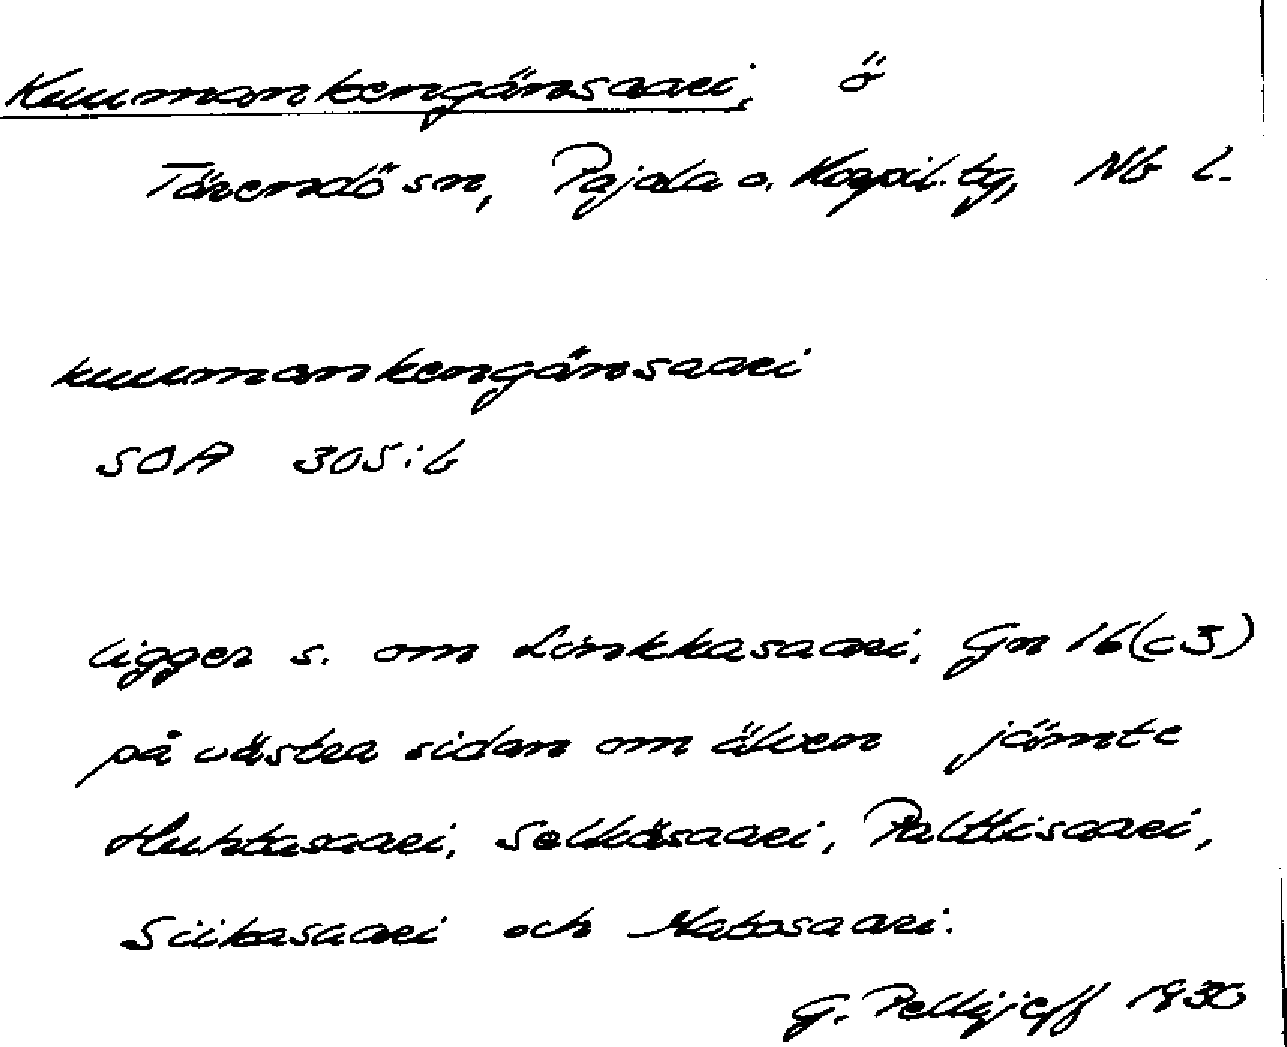 Kuumankengänsaari, ö
Tärendö sn, Pajala o. Korpil. tg, Nb l.
kuumankengänsaari
SOA 305:6
ligger s. om Linkkasaari, Gn 16 (c3)
på västra sidan om älven jämte
Huhtasaari, Selkäsaari, Palttisaari,
Siikasaari och Matosaari.
G. Pellijeff 1930